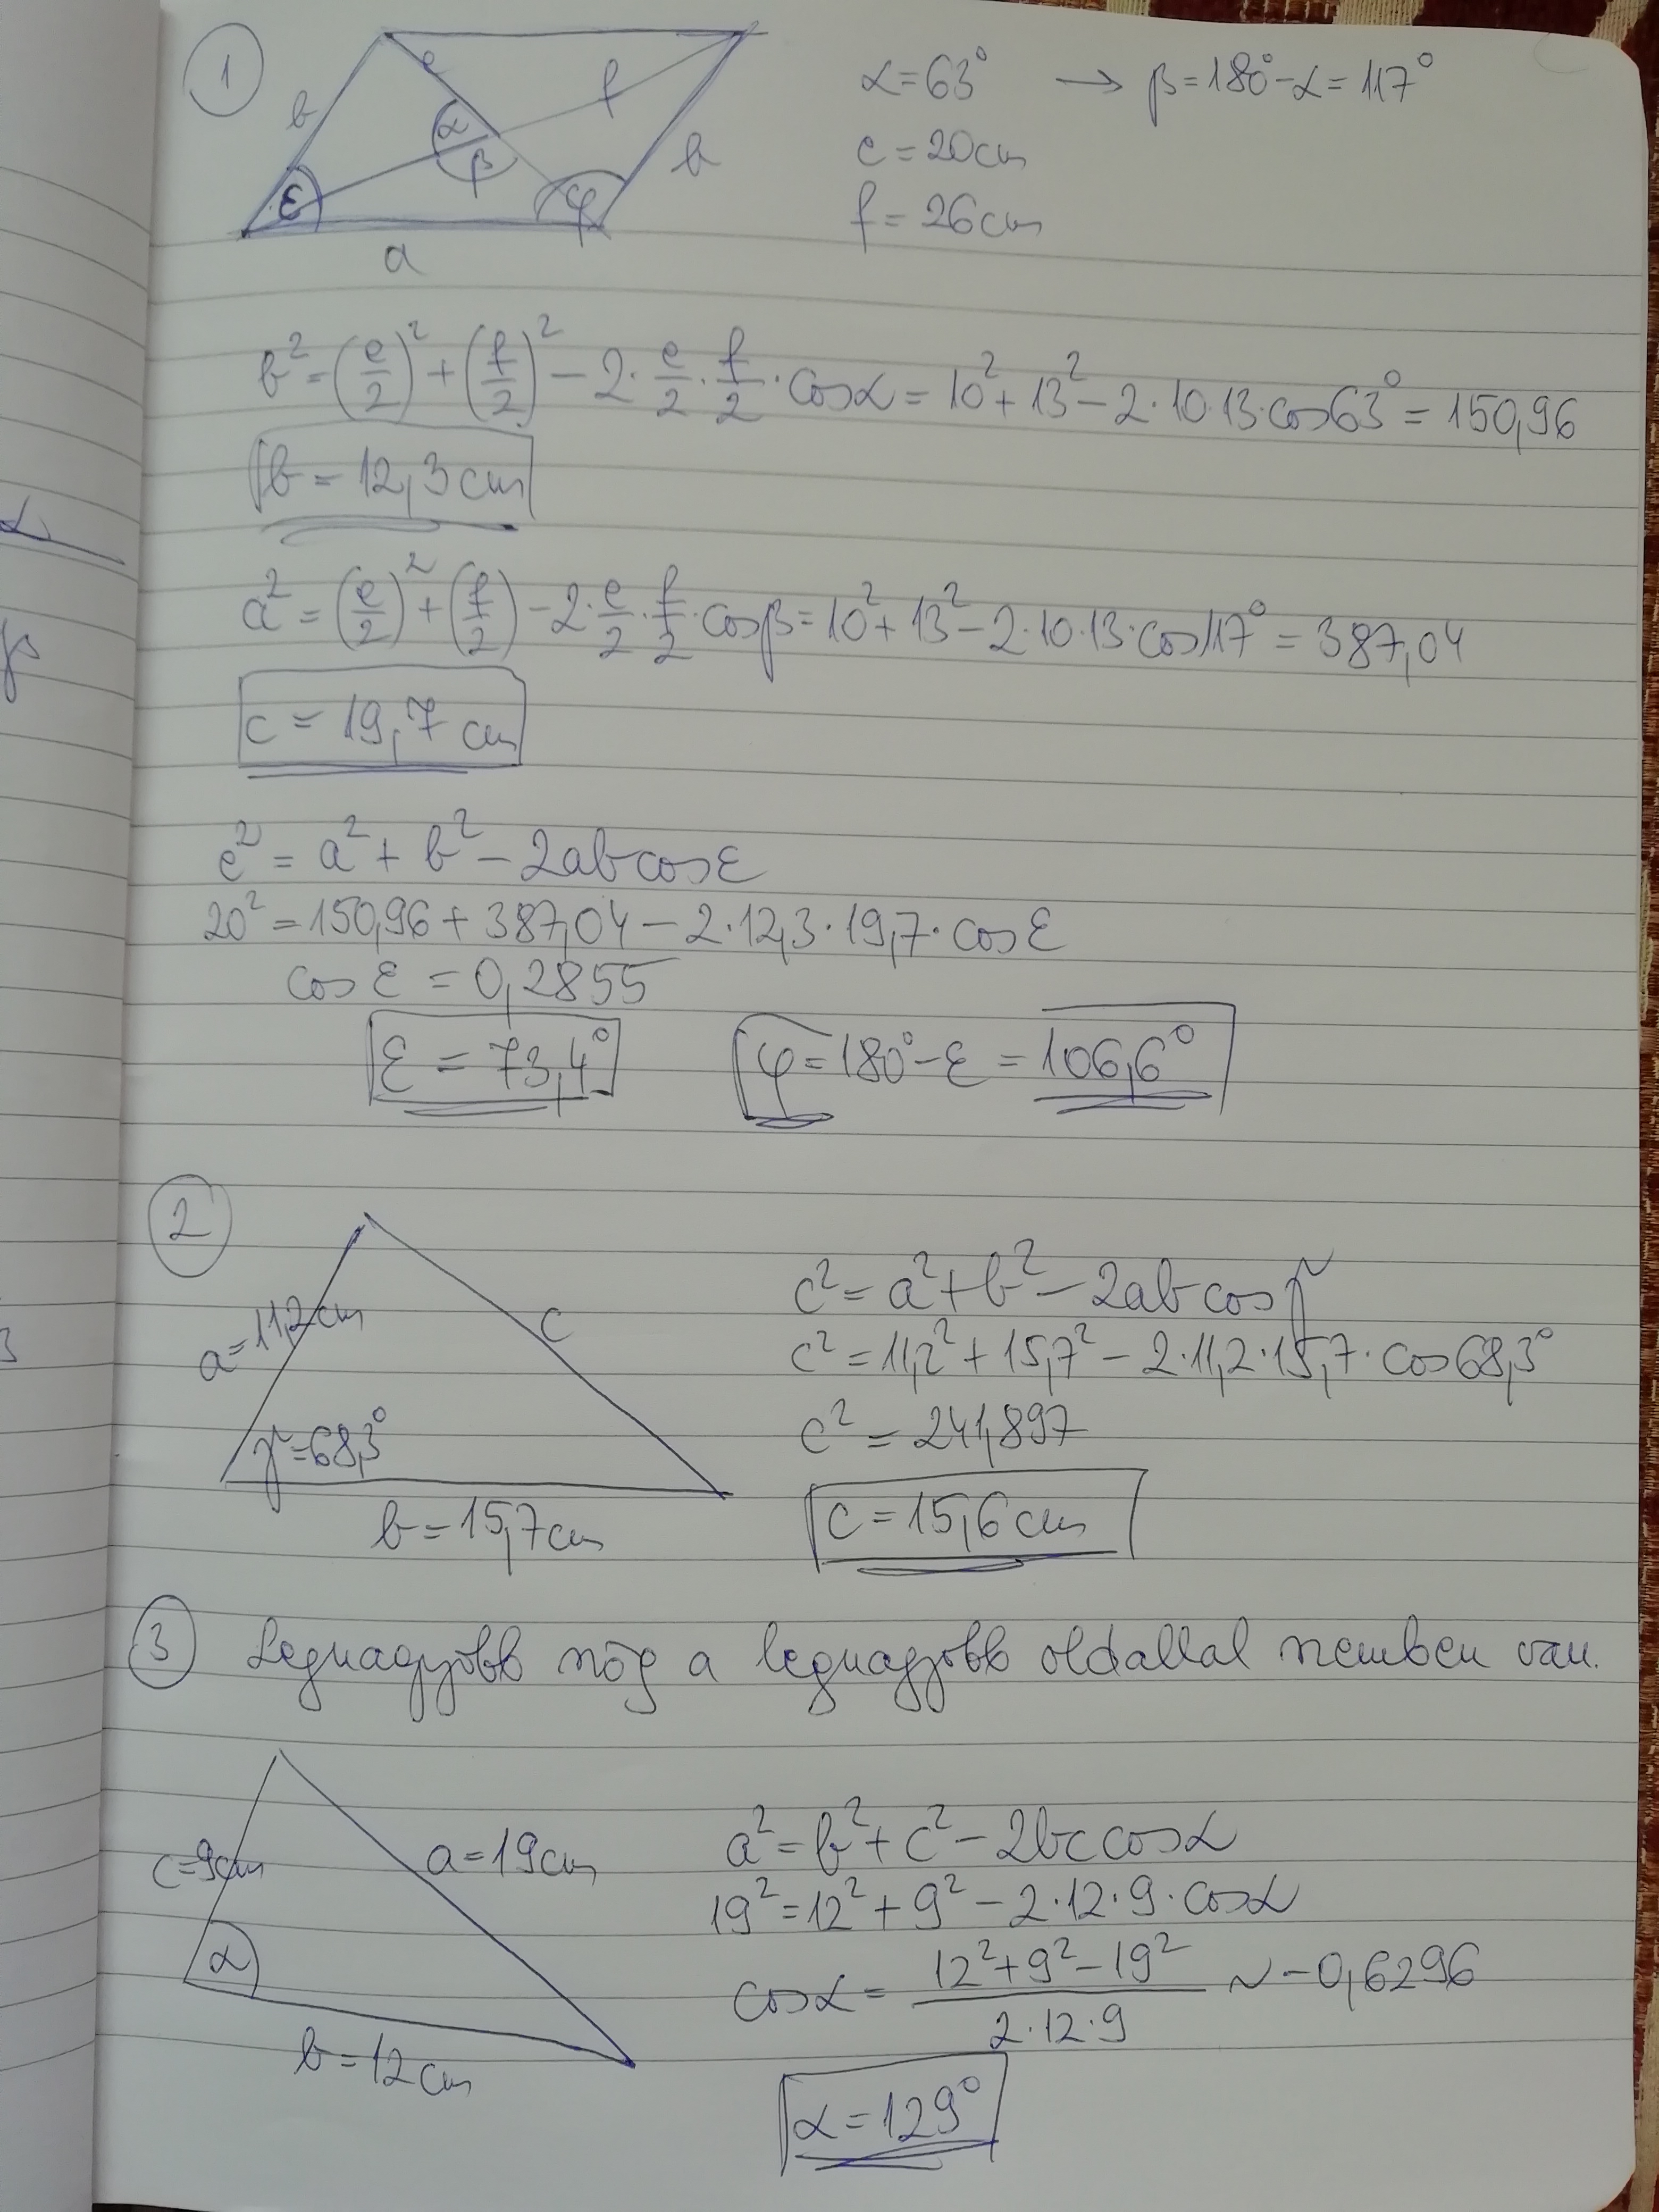 1
e
f
b
α
β
b
ε
φ
a
α=63° → β=180°-α=117°
e=20cm
f=26cm
b²=(e/2)²+(f/2)²-2·e/2·f/2·cosα=10²+13²-2·10·13·cos63°=150,96
b=12,3cm
a²=(e/2)²+(f/2)-2·e/2·f/2·cosβ=10²+13²-2·10·13·cos117°=387,04
c=19,7 cm
e²=a²+b²-2abcosε
20²=150,96+387,04-2·12,3·19,7·cosε
cosε=0,2855
ε=73,4°
φ=180°-ε=106,6°
2
a=11,2cm
c
γ=68,3°
b=15,7cm
c²=a²+b²-2abcosγ
c²=11,2²+15,7²-2·11,2·15,7·cos68,3°
c²=241,897
c=15,6cm
3 Legnagyobb szög a legnagyobb oldallal szemben van.
c=9cm
a=19cm
α
b=12cm
a²=b²+c²-2bccosα
19²=12²+9²-2·12·9·cosα
cosα=(12²+9²-19²)/(2·12·9) ~ -0,6296
α=129°